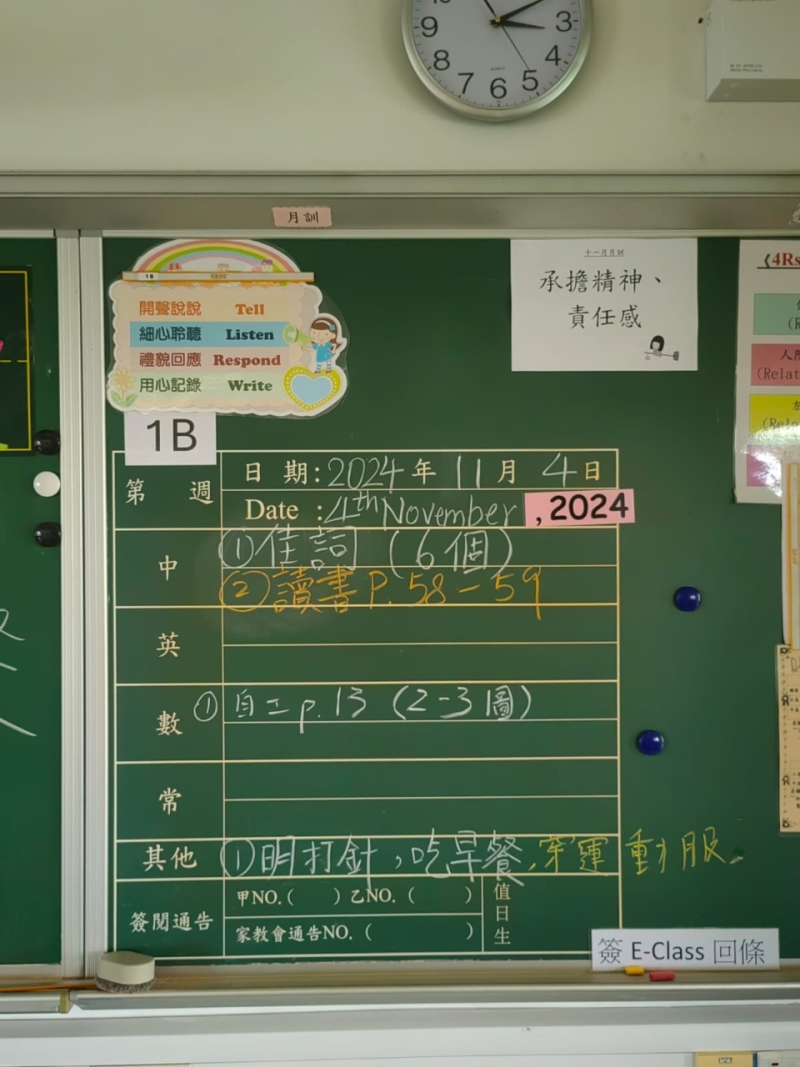 9 3
8 4
7 6 5
月訓
1B
開聲說說 Tell
細心聆聽 Listen
禮貌回應 Respond
用心記錄 Write
十一月月訓
承擔精神、
責任感
《4Rs
(Relat
1B
第 週
日 期:2024年 11月 4日
Date :4th November , 2024
中
①佳詞 (6個)
②讀書P.58-59
英
數
①自工p.13 (2-3圖)
常
其他
①明打針,吃早餐,穿運動服。
簽閱通告
甲NO.( ) 乙NO. ( )
家教會通告NO. ( )
值日生
簽 E-Class 回條